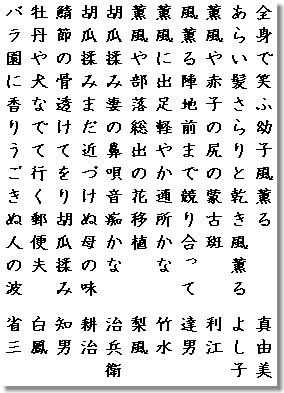 全身で笑ふ幼子風薫る　真由美
あらい髪さらりと乾き風薫る　よし子
薫風や赤子の尻の蒙古斑　利江
風薫る陣地前まで競り合って　達男
薫風に出足軽やか通所かな　竹水
薫風や部落総出の花移植　梨風
胡瓜揉み妻の鼻唄音痴かな　治兵衛
胡瓜揉みまだ近づけぬ母の味　耕治
鯖節の骨透けてをり胡瓜揉み　知男
牡丹や犬なでて行く郵便夫　白鳳
バラ園に香りうごきぬ人の波　省三